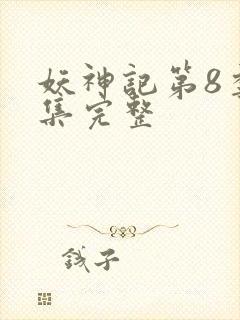 妖神記第8季
集完整
錢子